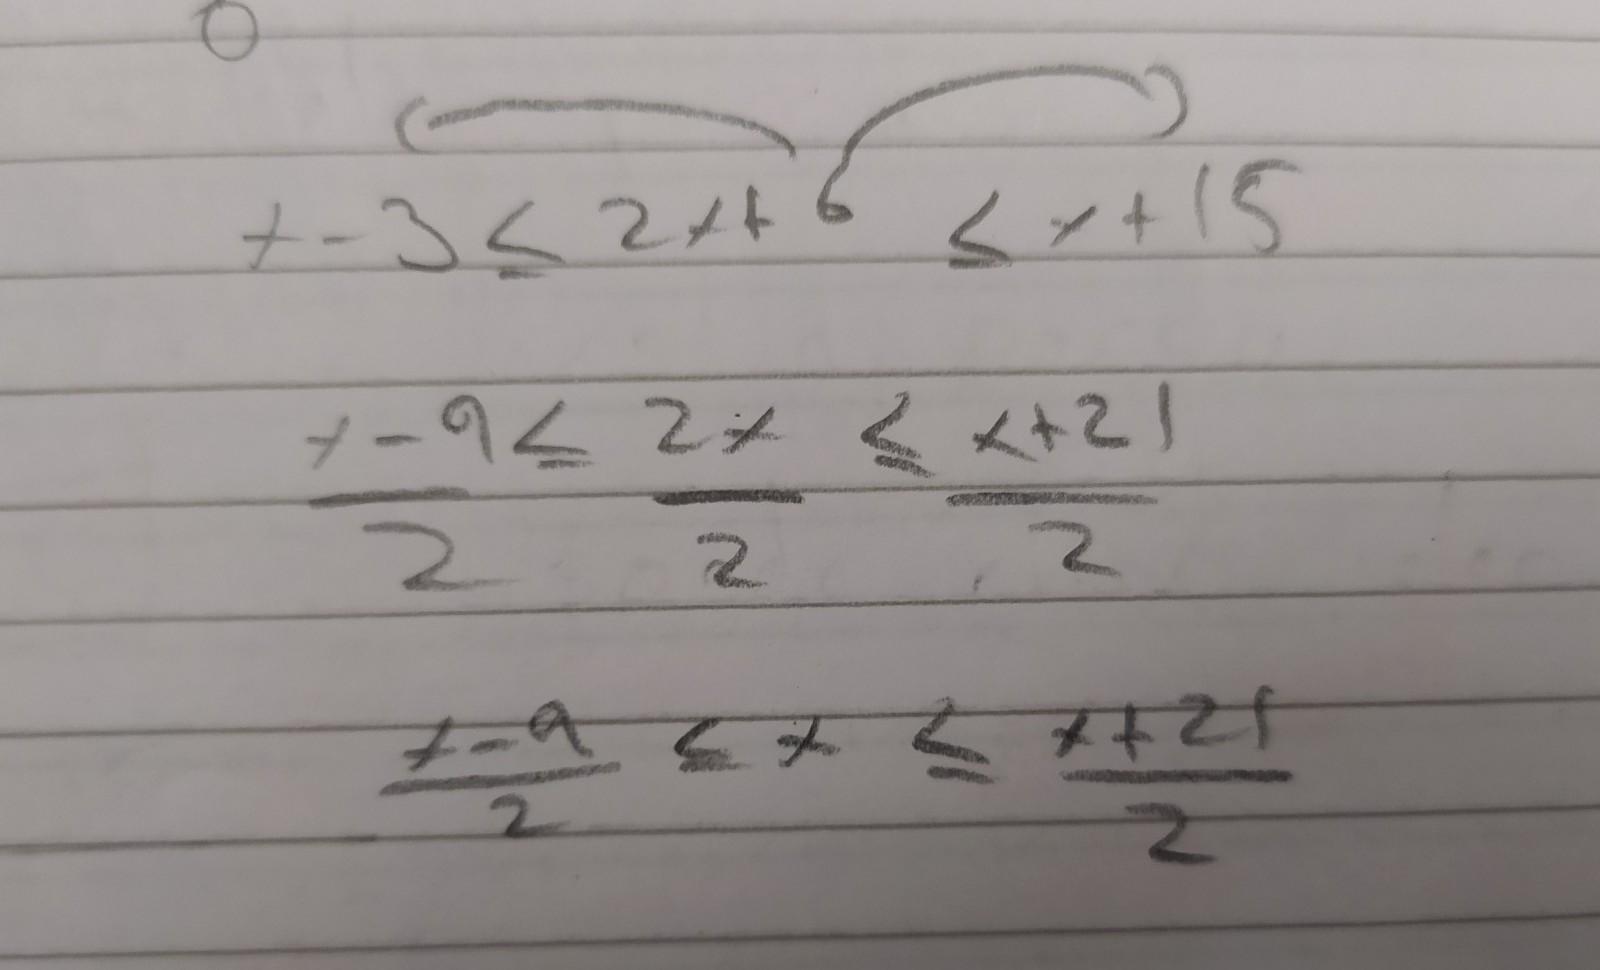 x - 3 ≤ 2x + 6 ≤ x + 15
x - 9 ≤ 2x ≤ x + 21
2 2 2
x - 9 ≤ x ≤ x + 21
2 2